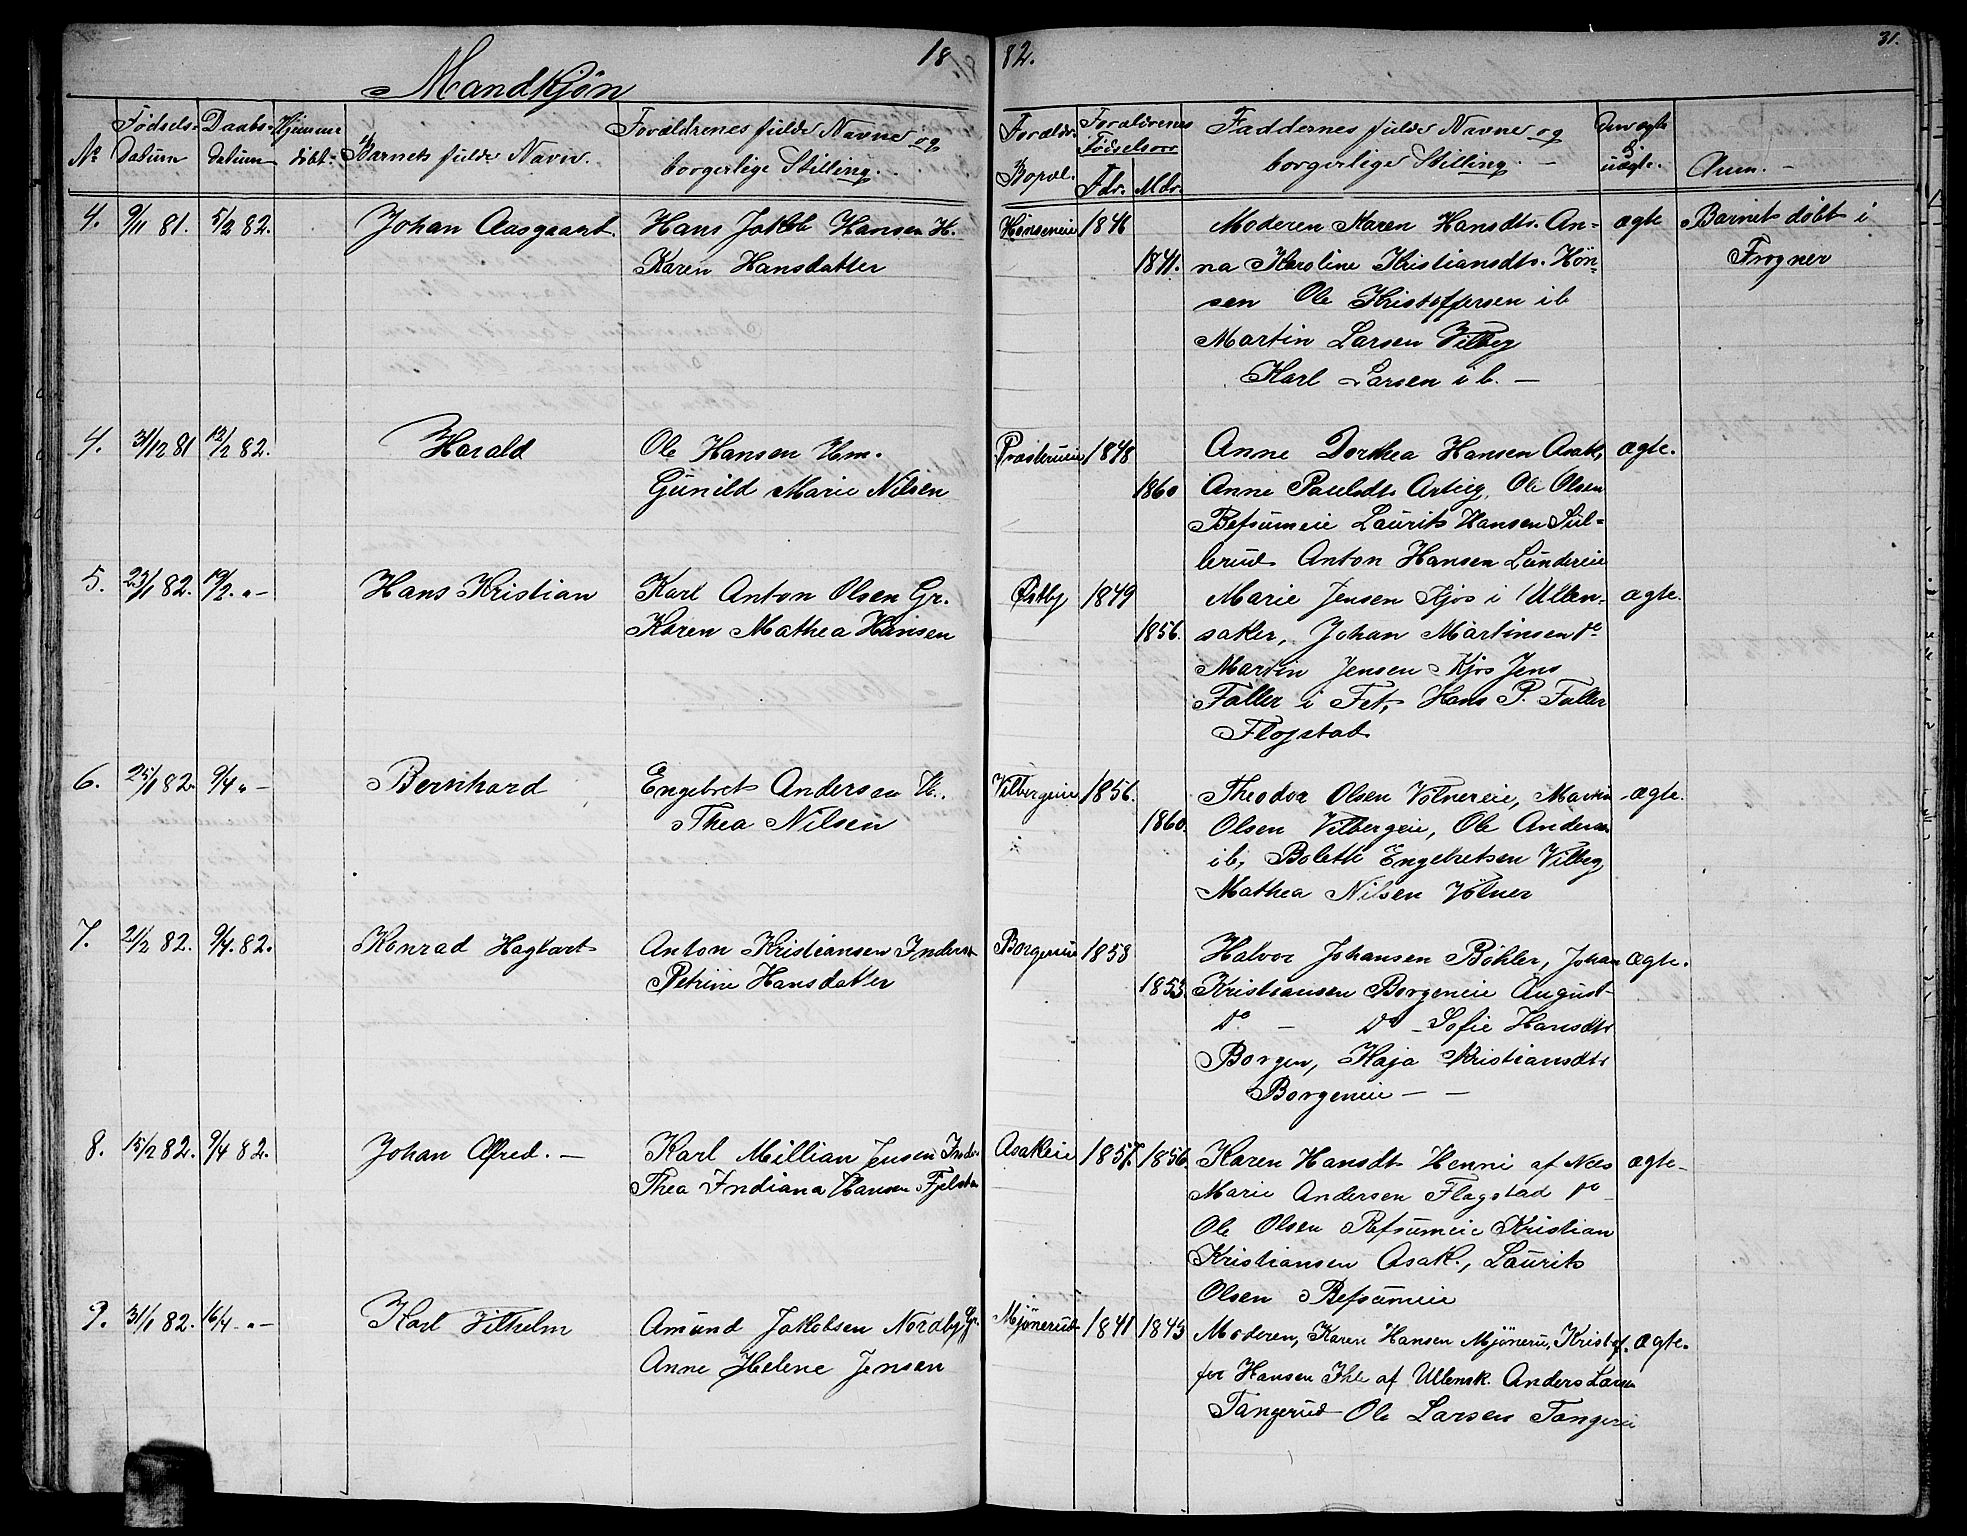 18 82.
31.
Mandkjøn
No
Fødsels-
datum
Daabs-
datum
Hjemme
døbt
Barnets fulde Navn
Forældrenes fulde Navne og
borgerlige Stilling.
Forældr.
Bopæl.
Forældrenes
Fødselsaar
Fdr. Mdr.
Faddernes fulde Navne og
borgerlige Stilling. —
Om ægte
uægte.
Anm. —
4. 9/11 81. 5/2 82. Johan Aasgaard Hans Jakob Hansen H. Hønseneie 1846 Moderen Karen Hansdtr. An- ægte Barnet døbt i
Karen Hansdatter 1841. na Karoline Kristiansdtr. Høn- Frogner
sen Ole Kristoffersen ib
Martin Larsen Vilberg
Karl Larsen ib. —
4. 31/12 81 12/2 82. Harald Ole Hansen Hm. Præsterueie 1848 Anne Dorthea Hansen Asak, ægte.
Gunild Marie Nilsen 1860 Anne Paulsdtr Arteig, Ole Olsen
Refsumeie Laurits Hansen Sul-
lerud Anton Hansen Lundereie
5. 23/1 82. 19/2 " — Hans Kristian Karl Anton Olsen Gr. Østby 1849 Marie Jensen Kjos i Ullen- ægte.
Karen Mathea Hansen 1856. saker, Johan Martinsen do
Martin Jensen Kjos Jens
Faller i Fet, Hans P. Faller
Flogstad
6. 25/1 82. 9/4 " — Bernhard Engebret Andersen H. Vilbergeie 1856. Theodor Olsen Volnereie, Martin ægte.
Thea Nilsen 1860. Olsen Vilbergeie, Ole Andersen
ib, Bolette Engebretsen Vilberg
Mathea Nilsen Volner
7. 21/2 82. 9/4. 82. Konrad Hagbart Anton Kristiansen Inderst Borgeneie 1858 Halvor Johansen Bøhler, Johan ægte.
Petrine Hansdatter 1853. Kristiansen Borgeneie August
do — do — Sofie Hansdtr
Borgen, Haja Kristiansdtr
Borgeneie — —
8. 15/2 82. 9/4 82. Johan Alfred. — Karl Millian Jensen Indr. Asakeie 1857. 1856. Karen Hansdtr Henni af Nes ægte
Thea Indiana Hansen Marie Andersen Flagstad do
Ole Olsen Refsumeie Kristian
Kristiansen Asak., Laurits
Olsen Refsumeie
9. 31/1 82. 16/4 — " — Karl Vilhelm Amund Jakobsen Nordby Gr. Mjønerud 1841 1843 Moderen, Karen Hansen Mjøneru, Kristof- ægte.
Anne Helene Jensen fer Hansen Ihle af Ullensk. Anders Larsen
Tangerud Ole Larsen